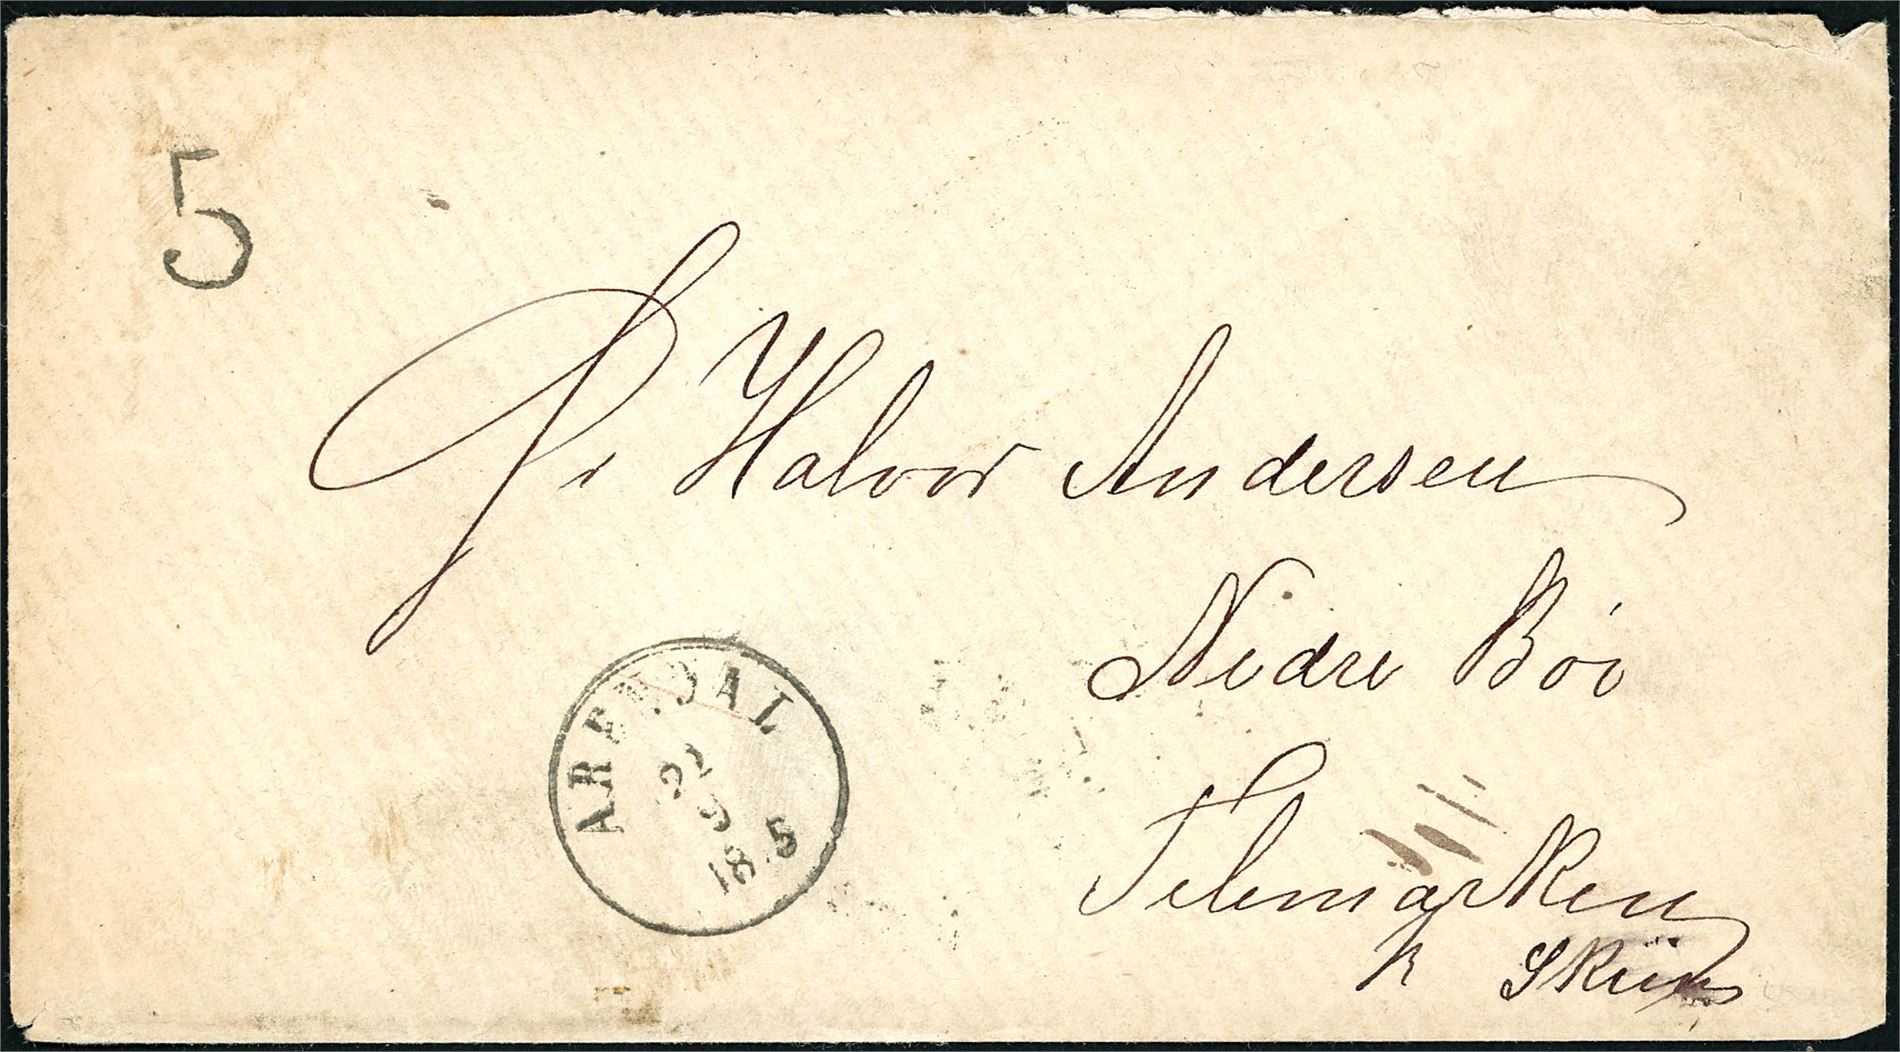 5
Hr Halvor Andersen
Nedre Böi
Telemarken
ARENDAL
22
9
18 5